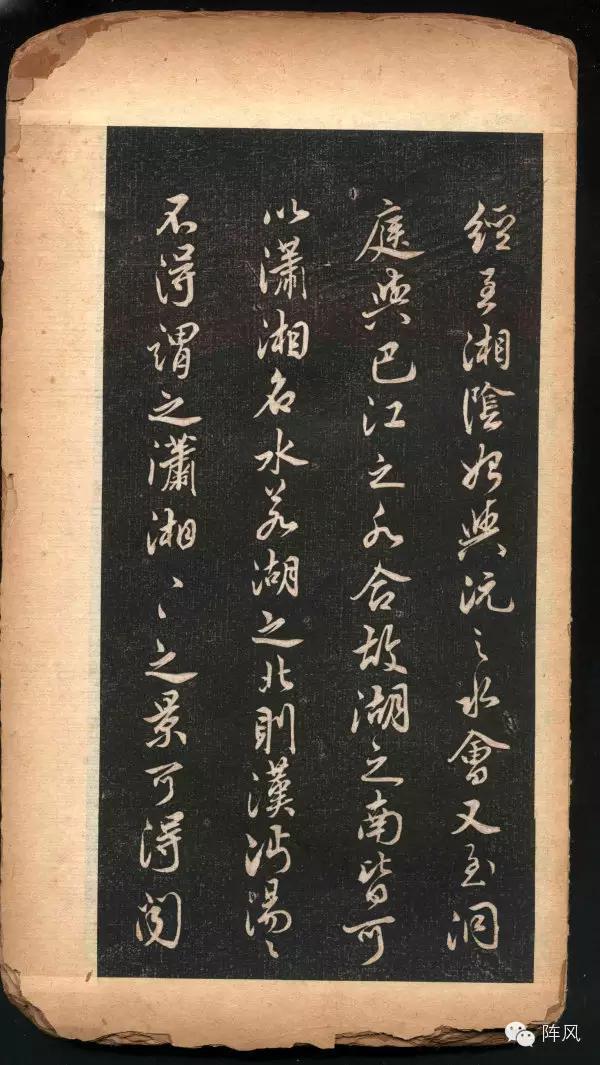 經至湘陰始與沅之水會又至洞
庭與巴江之水合故湖之南皆可
以瀟湘名水若湖之北則漢沔湯〻
不得謂之瀟湘〻〻之景可得聞
阵风